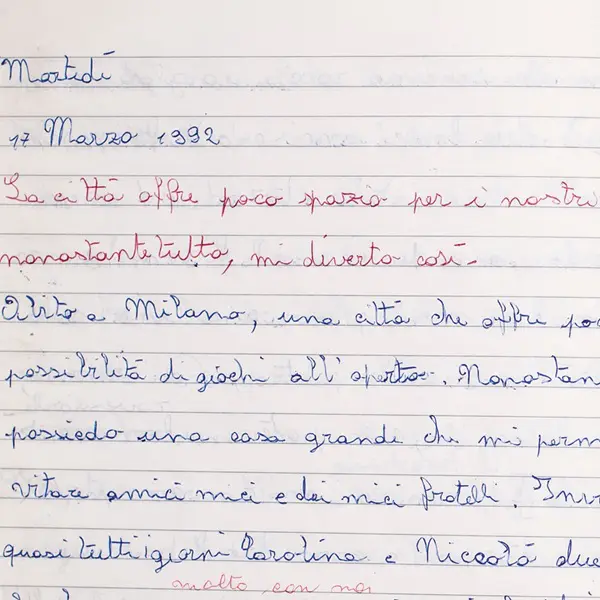 Martedí
17 Marzo 1992
La città offre poco spazio per i nostri
nonostante tutto, mi diverto così.
Abito a Milano, una città che offre poc
possibilità di giochi all'aperto. Nonostan
possiedo una casa grande che mi perm
vitare amici miei e dei miei fratelli. Inv
quasi tutti i giorni Carolina e Niccolò due
molto con noi